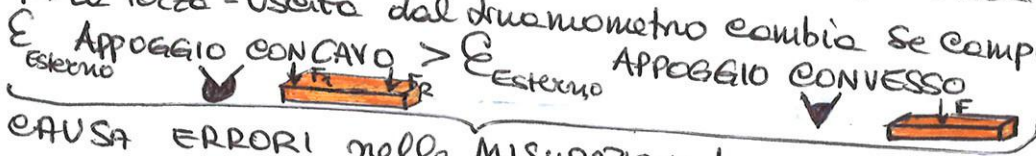 forza-uscita dal dinamometro cambia se camp
ε Esterno APPOGGIO CONCAVO > ε Esterno APPOGGIO CONVESSO
F FR F
CAUSA ERRORI nella